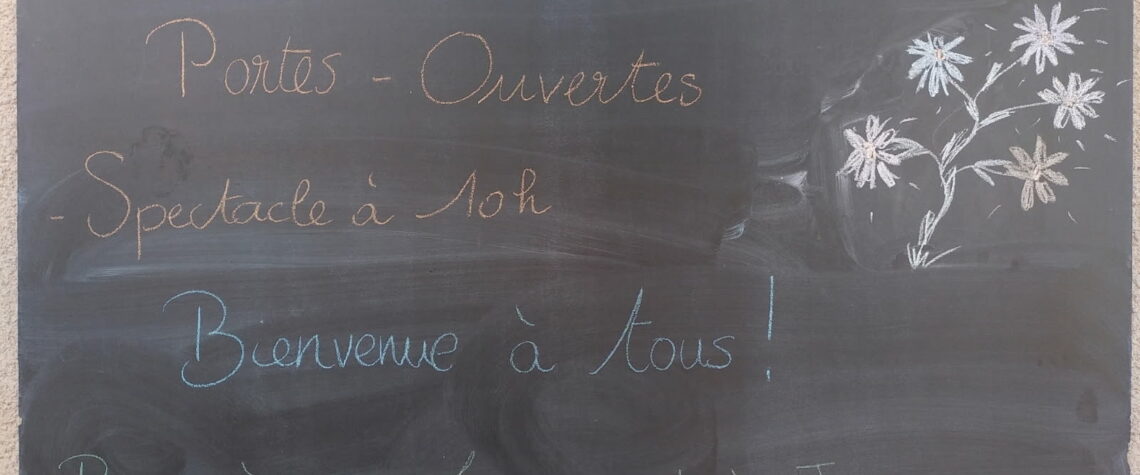 Portes - Ouvertes
- Spectacle à 10h
Bienvenue à tous !